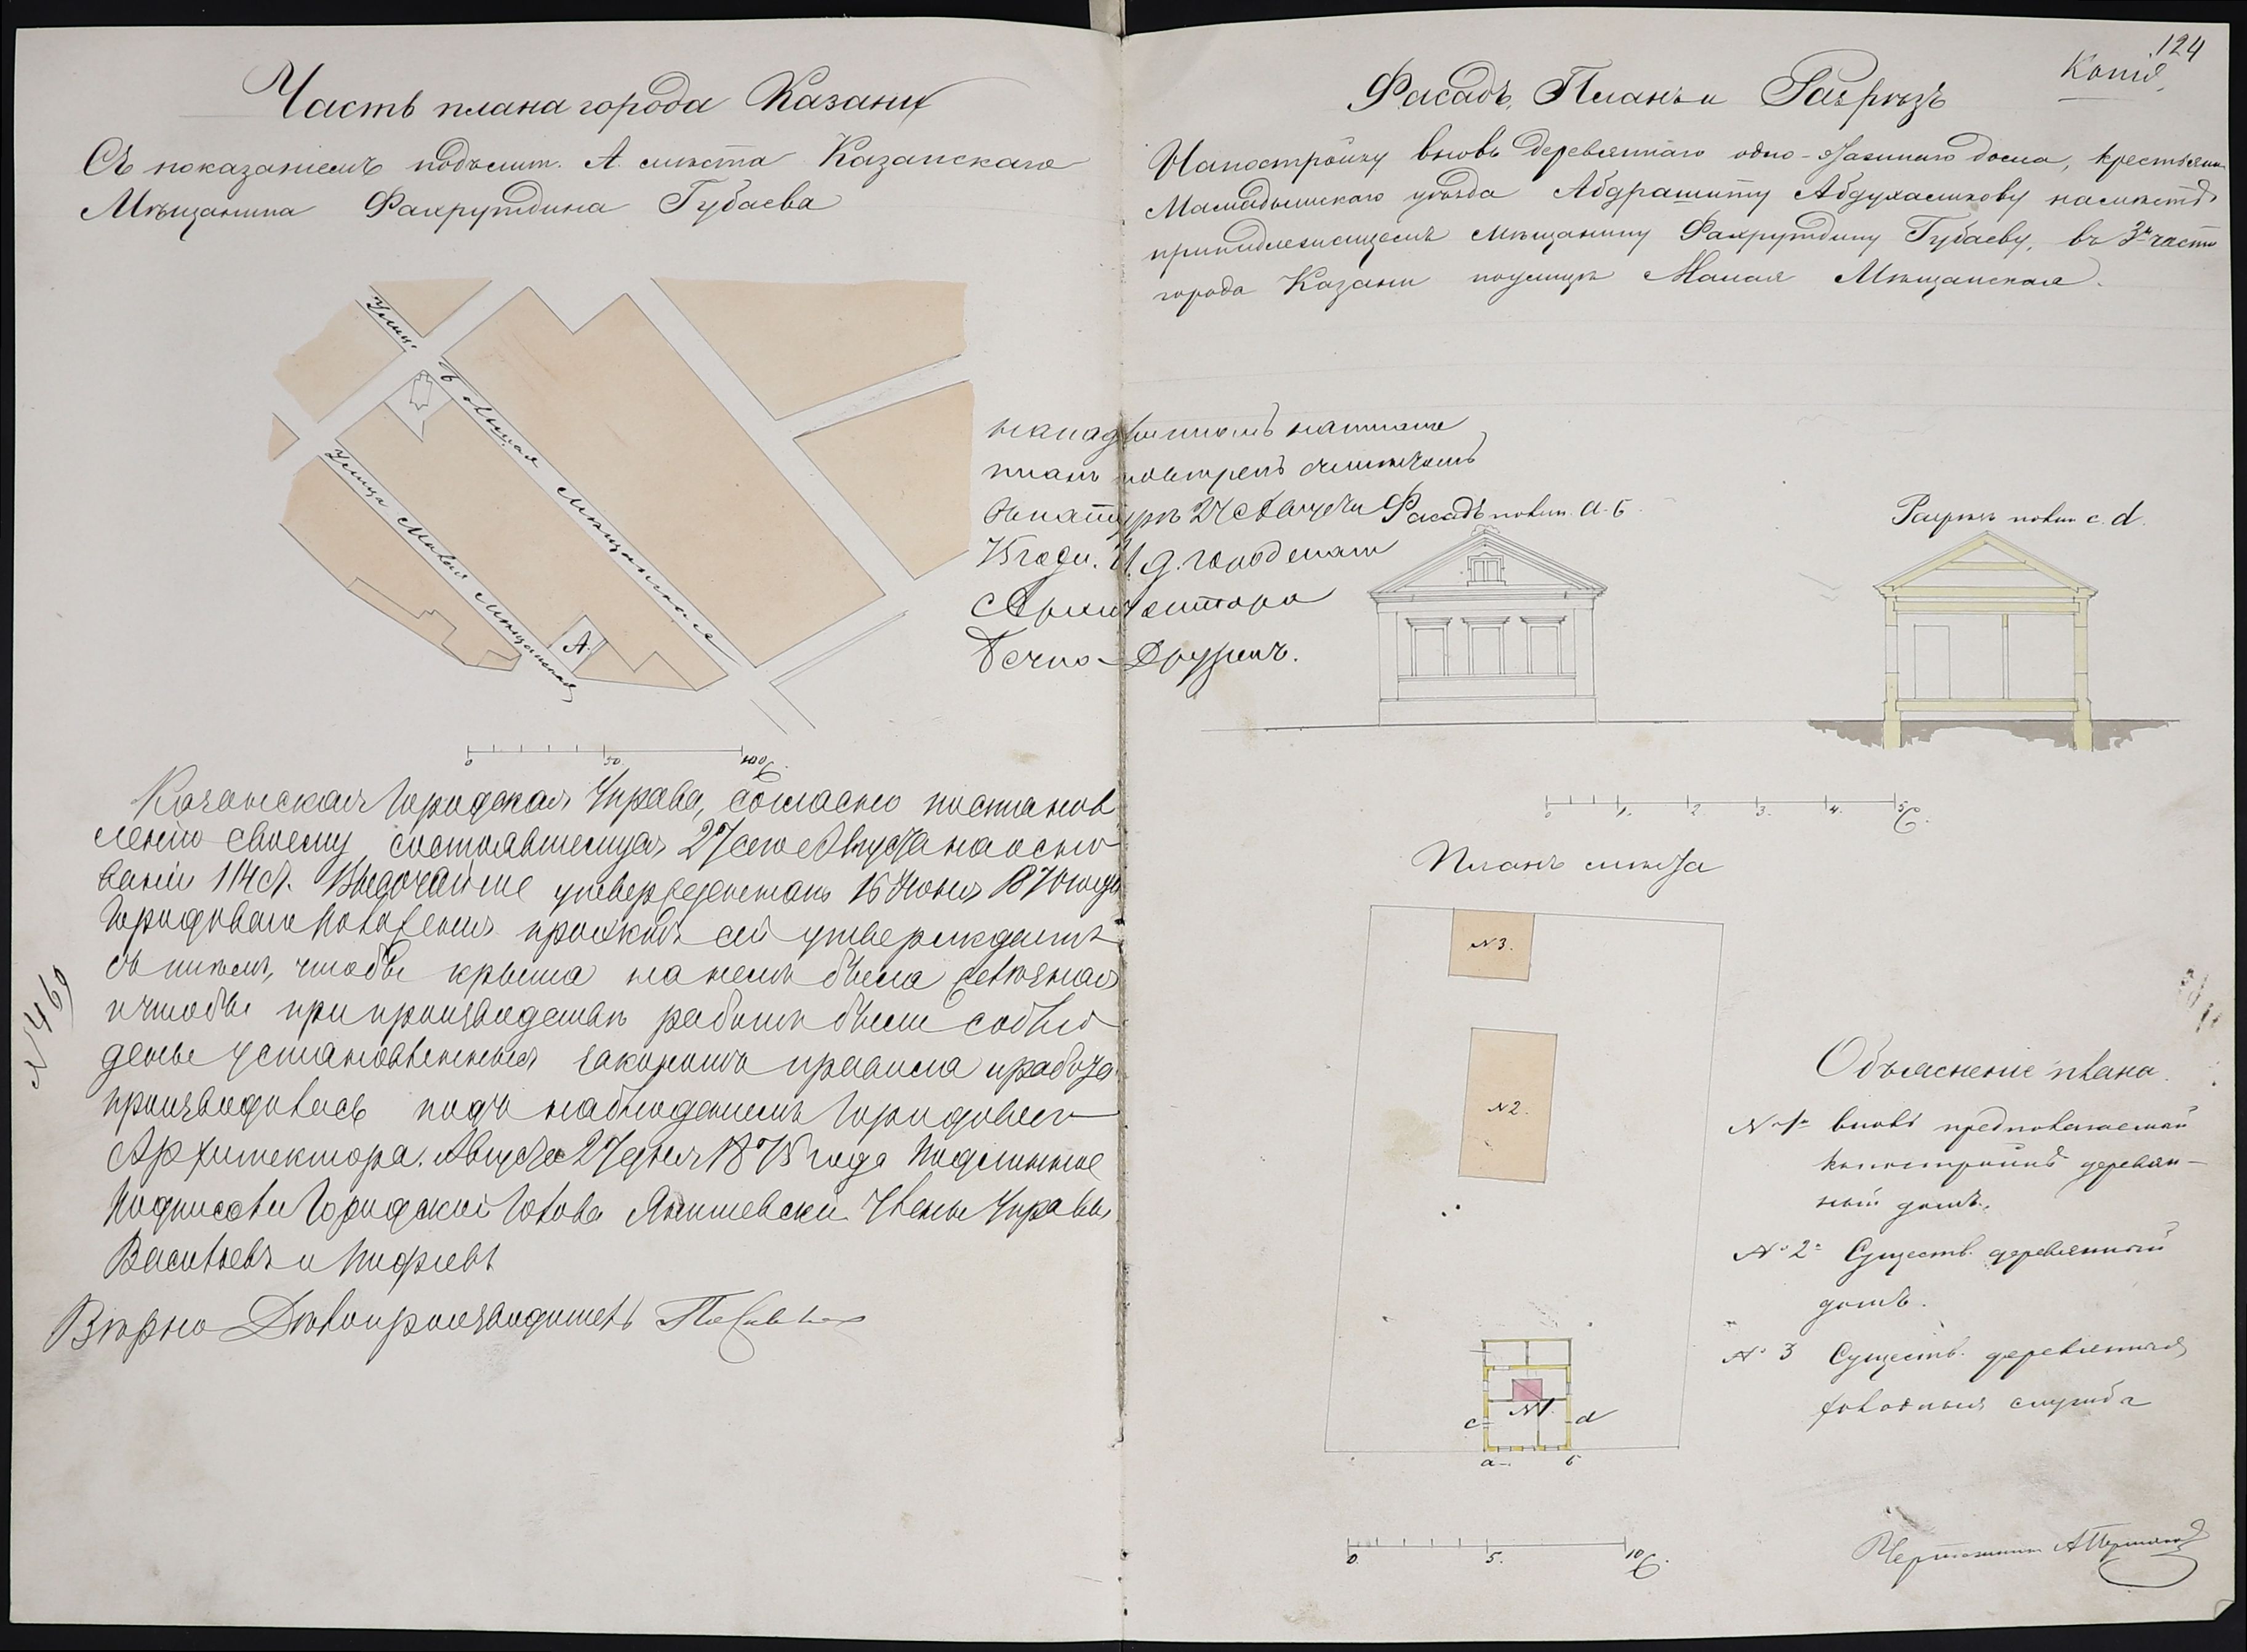 Часть плана города Казани
Съ показаніемъ подъ лит. А. мѣста Казанскаго
Мѣщанина Фахрутдина Губаева
Улица Большая Мѣщанская
Улица Малая Мѣщанская
А.
0 50 100 С.
Казанская Городская Управа, согласно постанов
ленію своему, состоявшемуся 27 сего Августа на осно
ваніи 114 ст. Высочайше утвержденнаго 16 Іюня 1870 года
Городоваго Положенія проэктъ сей утверждаетъ
съ тѣмъ, чтобы крыша на немъ была
и чтобы при производствѣ работъ были соблю
дены установленныя закономъ правила и работа
производилась подъ наблюденіемъ Городоваго
Архитектора. Августа 27 дня 1875 года Подлинное
Подписали Городской Голова Янишевскій Члены Управы
Васильевъ и
Вѣрно Дѣлопроизводитель
№ 469
124
Копія
Фасадъ, Планъ и Разрѣзъ
На постройку вновь деревяннаго одно-этажнаго дома, крестьянину
Мамадышскаго уѣзда Абдрашиту Абдухаликову на мѣстѣ
принадлежащемъ мѣщанину Фахрутдину Губаеву, въ 3й части
города Казани по улицѣ Малая Мѣщанская.
на подлинномъ написано
планъ повѣренъ
въ натурѣ 27 Августа
75 года. И. д. городскаго
Архитектора
Бечко-Друзинъ.
Фасадъ по лин. а. б
Разрѣзъ по лин c. d.
0 1. 2 3. 4. 5 С.
Планъ мѣста
№ 3.
№ 2.
№ 1.
c d
а б
0 5. 10 С.
Объясненіе плана.
№ 1й вновь предполагаемый
къ постройкѣ деревян-
ный домъ.
№ 2й Существ. деревянный
домъ.
№ 3 Существ. деревянныя
холодныя службы
Чертежникъ